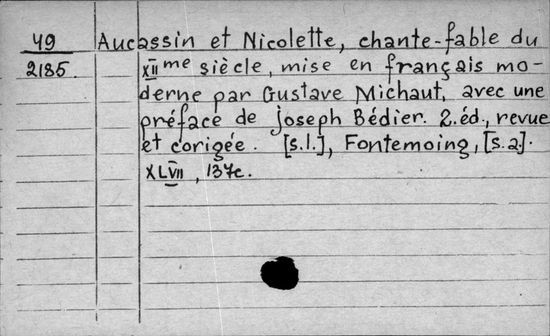 49 Aucassin et Nicolette, chante-fable du
2185. XIIme siècle, mise en français mo-
derne par Gustave Michaut, avec une
préface de Joseph Bédier. 2.éd., revue
et corigée. [s.l.], Fontemoing, [s.a.].
XLVII, 137c.